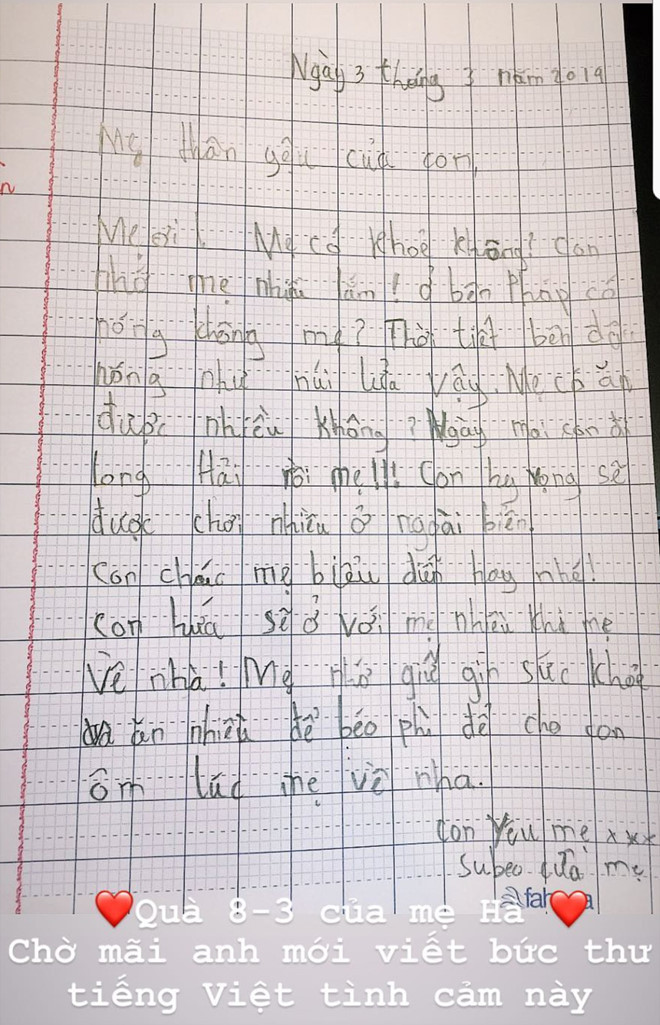 Ngày 3 tháng 3 năm 2019
Mẹ thân yêu của con,
Mẹ ơi! Mẹ có khoẻ không? Con
nhớ mẹ nhiều lắm! ở bên Pháp có
nóng không mẹ? Thời tiết bên đây
nóng như núi lửa vậy. Mẹ có ăn
được nhiều không? Ngày mai con đi
Long Hải rồi mẹ!!! Con hy vọng sẽ
được chơi nhiều ở ngoài biển!
Con chúc mẹ biểu diễn hay nhé!
Con hứa sẽ ở với mẹ nhiều khi mẹ
Về nhà! Mẹ nhớ giữ gìn sức khoẻ
và ăn nhiều để béo phì để cho con
ôm lúc mẹ về nha.
Con Yêu mẹ xxx
Subeo của mẹ
❤️Quà 8-3 của mẹ Hà❤️
Chờ mãi anh mới viết bức thư
tiếng Việt tình cảm này